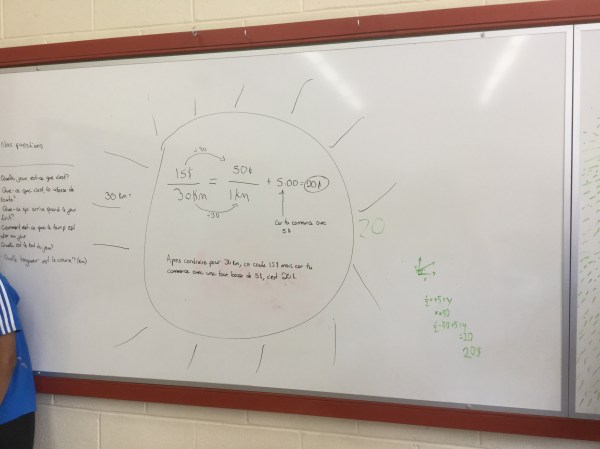 Nos questions
Quelle jour est-ce que c'est?
Que-ce que c'est la vitesse de
Que-ce qui arrive quand le jour
finit?
Comment est-ce que le temp est
Quelle est le but du jeu?
Quelle longueur est la course? (km)
30 km =
÷30
15$ = 50¢ + 5.00 = 20$
30km 1km
÷30
Car tu commence avec
5$
Apres conduire pour 30 km, ça coute 15$ mais car tu
commence avec une tour basse de 5$, c'est 20$.
20
½x+5=y
x=30
½·30+5=y
=20
20$